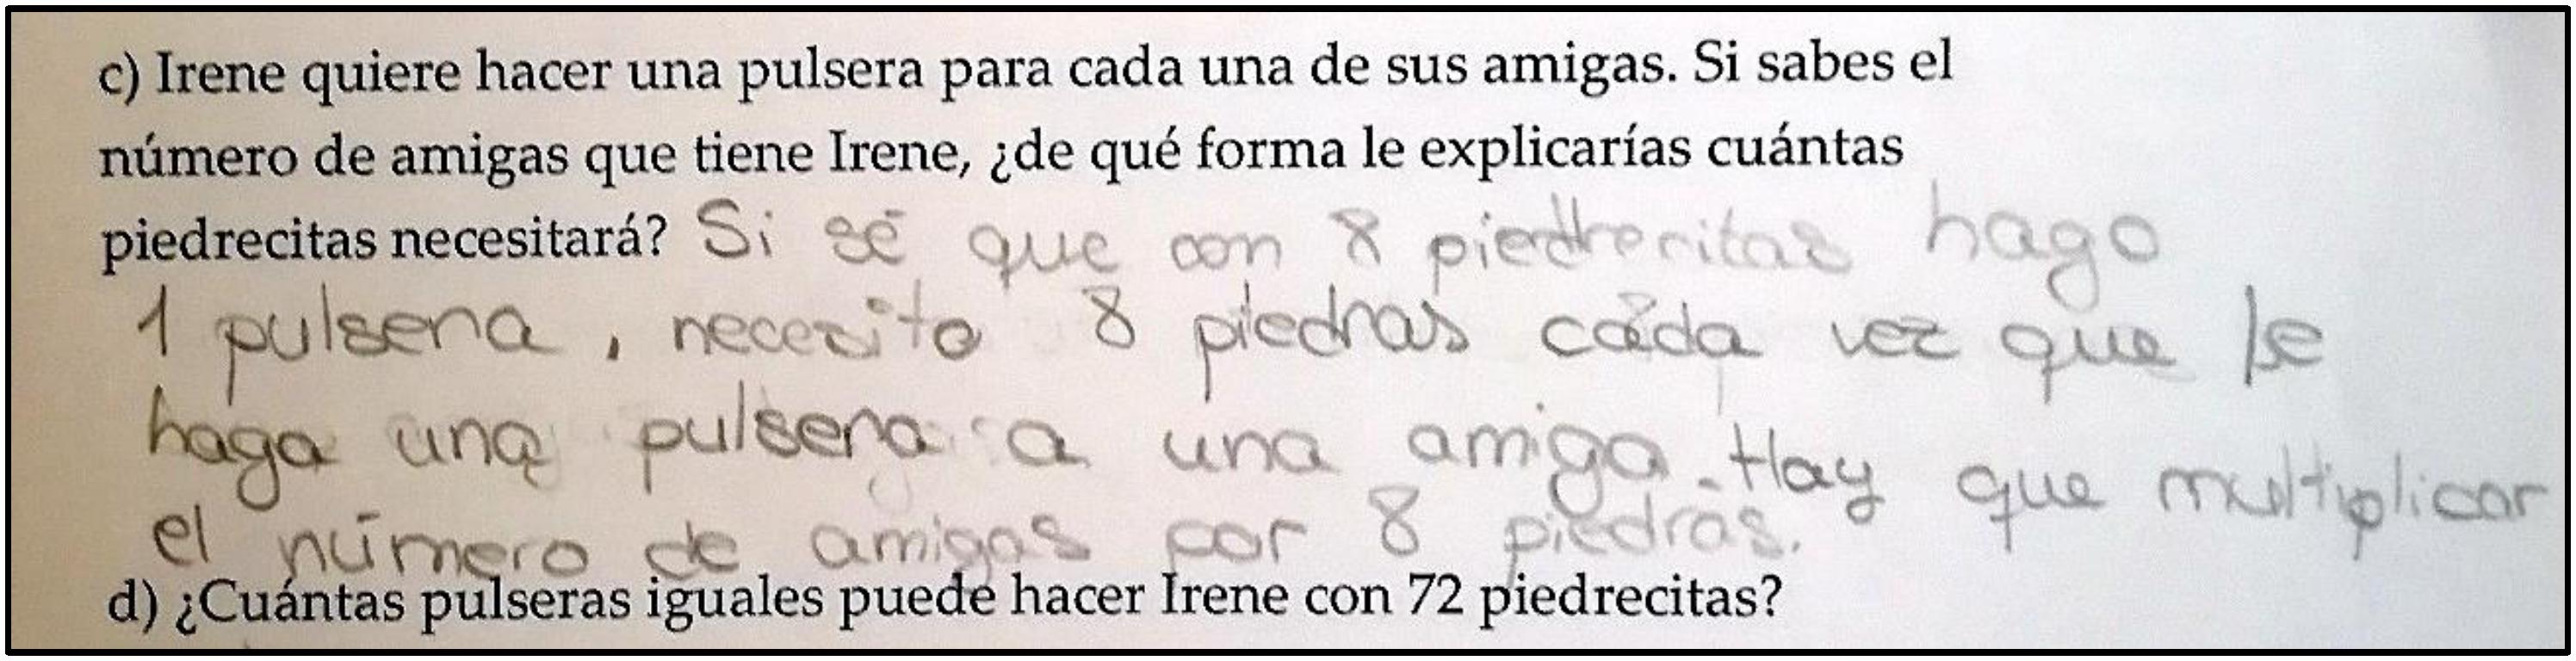 c) Irene quiere hacer una pulsera para cada una de sus amigas. Si sabes el
número de amigas que tiene Irene, ¿de qué forma le explicarías cuántas
piedrecitas necesitará? Si sé que con 8 piedrecitas hago
1 pulsera, necesito 8 piedras cada vez que le
haga una pulsera a una amiga. Hay que multiplicar
el número de amigas por 8 piedras.
d) ¿Cuántas pulseras iguales puede hacer Irene con 72 piedrecitas?